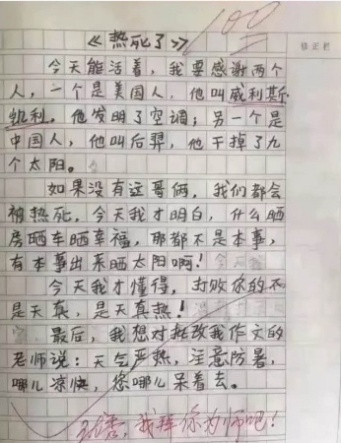 100
《热死了》
修正栏
今天能活着，我要感谢两个
人，一个是美国人，他叫威利斯
凯利。他发明了空调；另一个是
中国人，他叫后羿，他干掉了九
个太阳。
如果没有这哥俩，我们都会
被热死，今天我才明白，什么晒
房晒车晒幸福，那都不是本事，
有本事出来晒太阳啊！
今天我才懂得，打败你的不
是天真，是天真热！
最后，我想对批改我作文的
老师说：天气严热，注意防暑，
哪儿凉快，您哪儿呆着去。
我拜你为师吧！